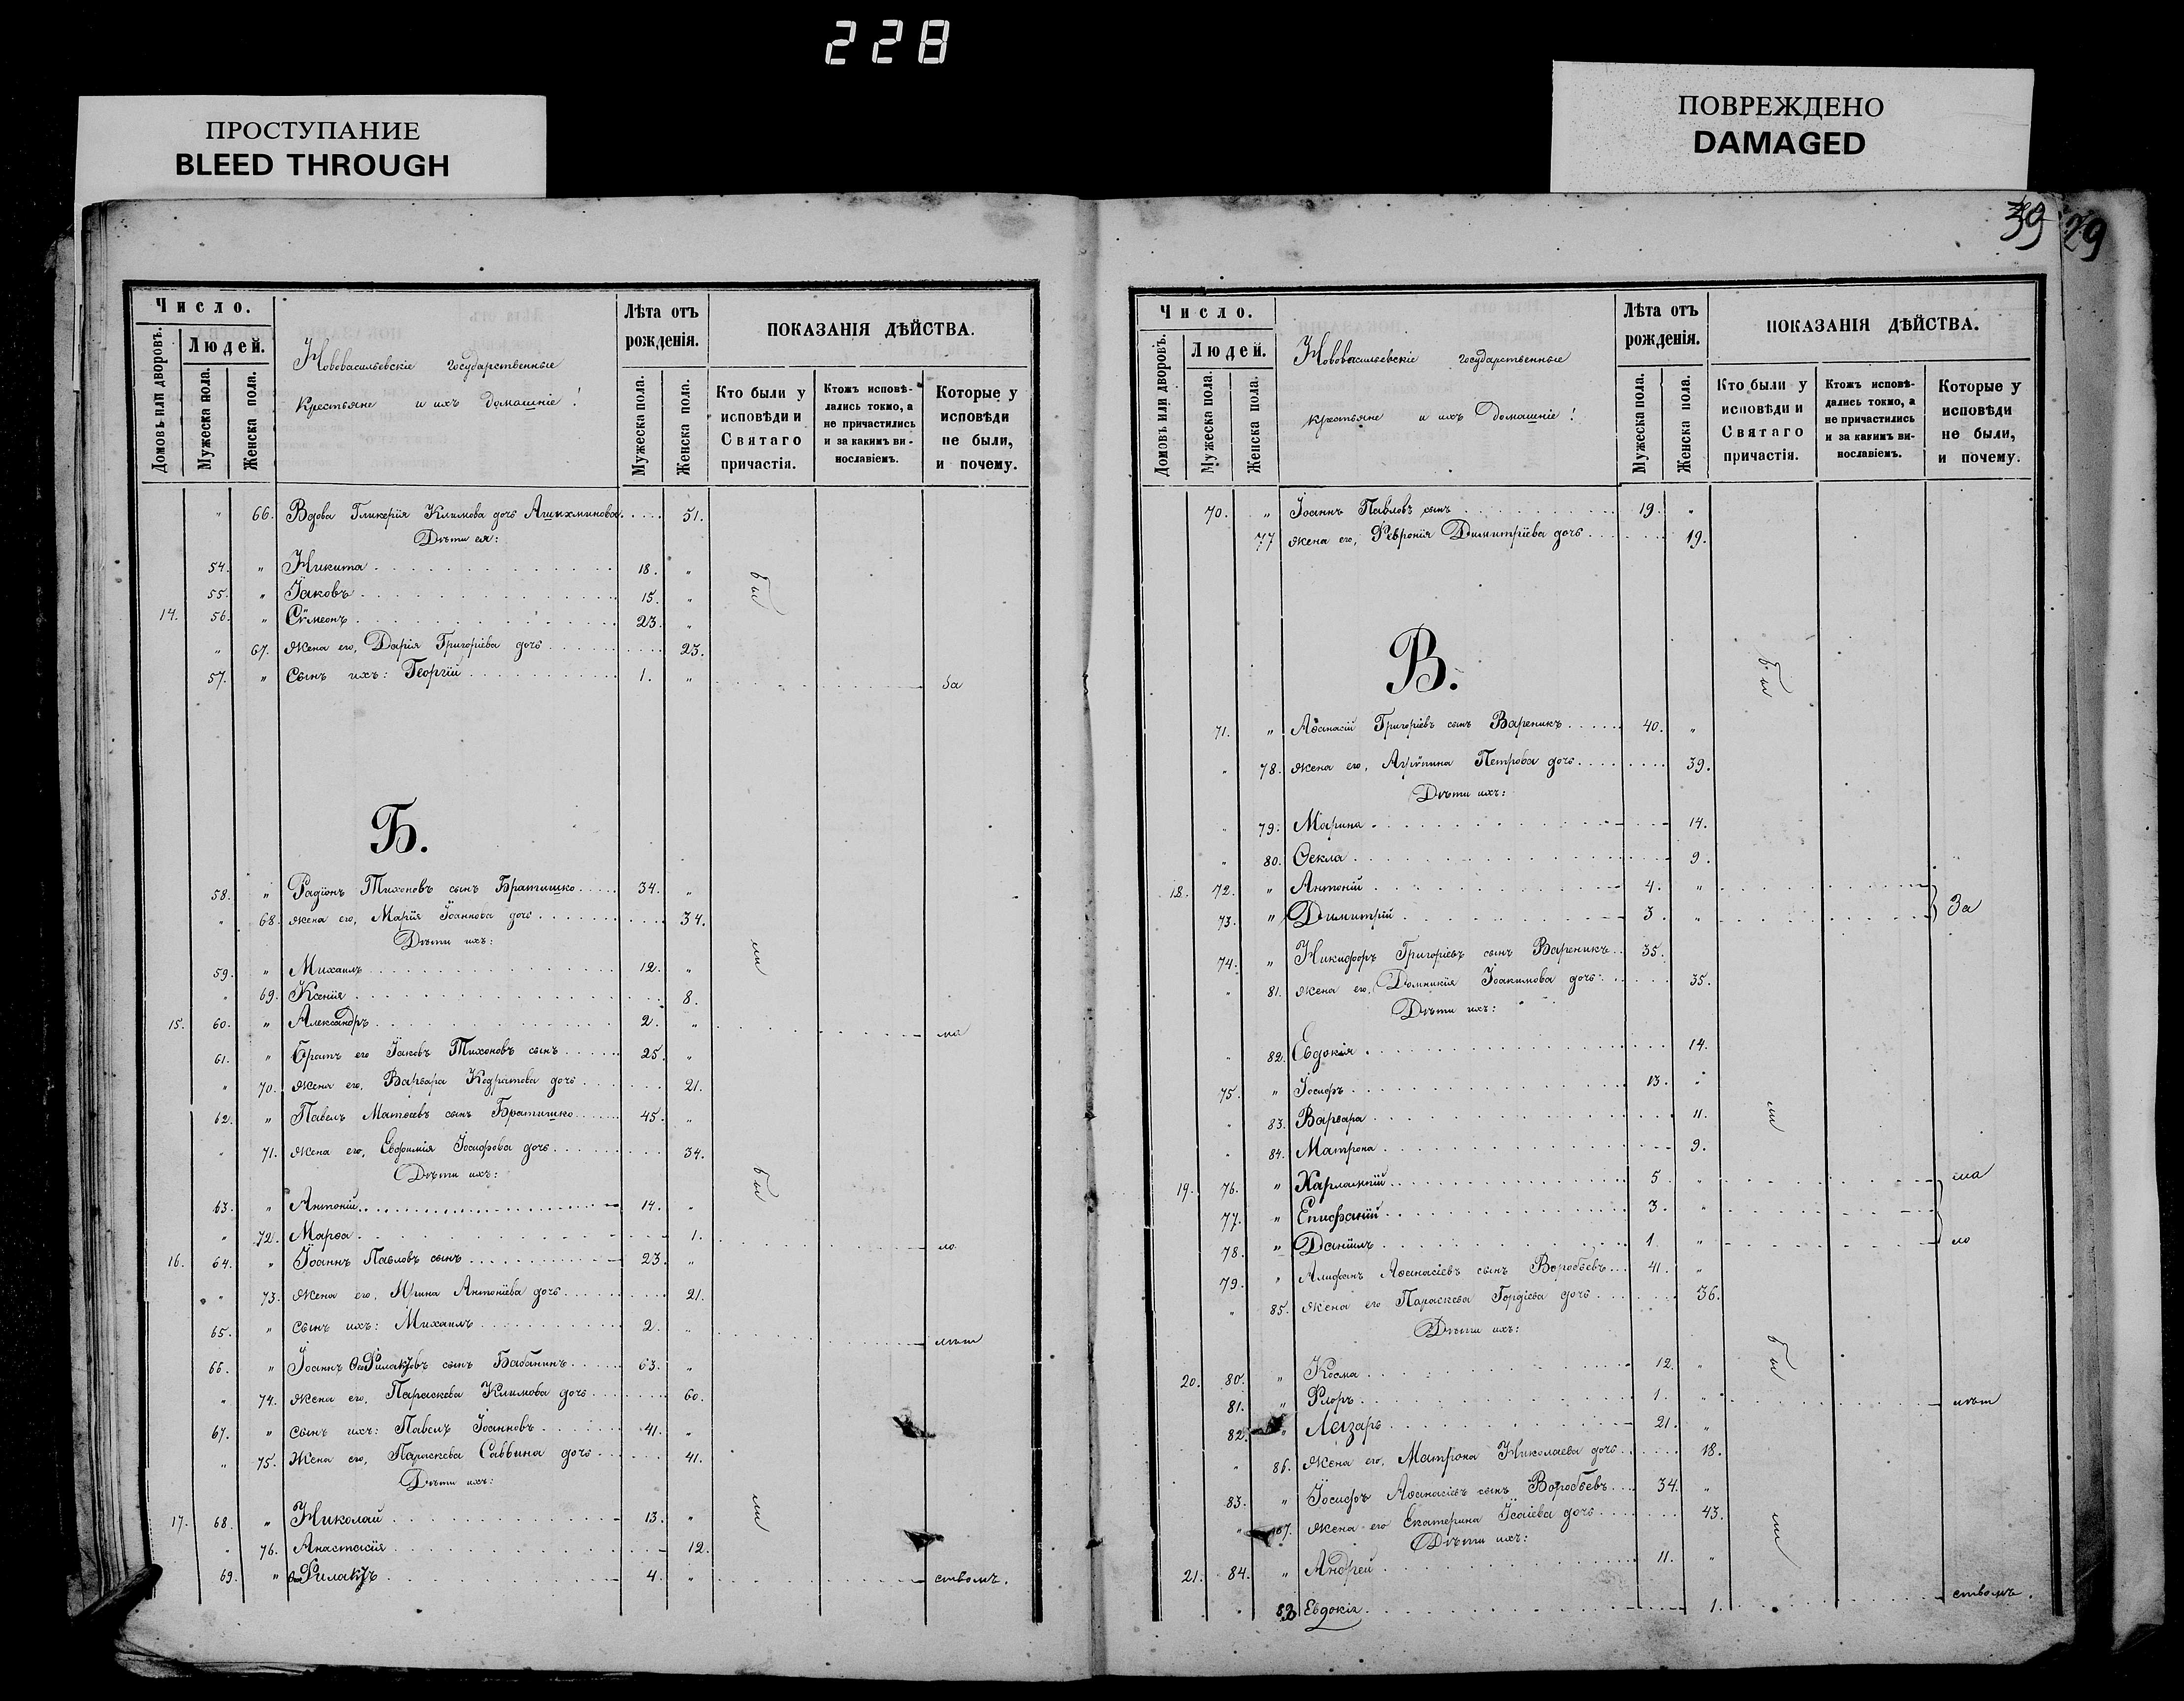 228
ПРОСТУПАНИЕ
BLEED THROUGH
ПОВРЕЖДЕНО
DAMAGED
39 29
Число.
Людей.
Домовъ или дворовъ.
Мужеска пола.
Женска пола.
Нововасильевскіе государственные
крестьяне и ихъ домашніе!
Лѣта отъ
рожденія.
Мужеска пола.
Женска пола.
ПОКАЗАНІЯ ДѢЙСТВА.
Кто были у
исповѣди и
Святаго
причастія.
Ктожъ исповѣ-
дались токмо, а
не причастились
и за какимъ ви-
нословіемъ.
Которые у
исповѣди
не были,
и почему.
" 66. Вдова Гликерія Климова дочь Ашихминова. 51.
Дѣти ея:
54. " Никита 18. "
55. " Іаковъ 15. "
бы
14. 56. " Сѵмеонъ 23. "
" 67. Жена его, Дарія Григоріева дочь 23.
57. " Сынъ ихъ: Георгій 1. " За
Б.
58. " Радіонъ Тихоновъ сынъ Братишко 34. "
" 68. жена его, Марія Іоаннова дочь 34.
Дѣти ихъ:
ли
59. " Михаилъ 12. "
" 69. Ксенія 8.
15. 60. " Александръ 2. " ма
61. " Братъ его Іаковъ Тихоновъ сынъ 25. "
" 70. Жена его, Варвара Кодратова дочь 21.
62. " Павелъ Матѳеевъ сынъ Братишко 45. "
" 71. Жена его, Евфимія Іосифова дочь 34.
Дѣти ихъ:
бы
63. " Антоній 14. "
" 72. Марѳа 1. ло
16. 64. " Іоаннъ Павловъ сынъ 23. "
" 73. Жена его, Ирина Антоніева дочь 21.
65. " Сынъ ихъ: Михаилъ 2. " лѣт
66. " Іоаннъ сынъ Бабанинъ 63. "
" 74. Жена его, Параскева Климова дочь 60.
67. " Сынъ ихъ: Павелъ Іоанновъ 41. "
" 75. Жена его, Параскева Саввина дочь 41.
Дѣти ихъ:
ли
17. 68. " Николай 13. "
" 76. Анастасія 12.
69. " 4. " ствомъ.
Число.
Людей.
Домовъ или дворовъ.
Мужеска пола.
Женска пола.
Нововасильевскіе государственные
крестьяне и ихъ домашніе!
Лѣта отъ
рожденія.
Мужеска пола.
Женска пола.
ПОКАЗАНІЯ ДѢЙСТВА.
Кто были у
исповѣди и
Святаго
причастія.
Ктожъ исповѣ-
дались токмо, а
не причастились
и за какимъ ви-
нословіемъ.
Которые у
исповѣди
не были,
и почему.
70. " Іоаннъ Павловъ сынъ 19. "
77 жена его, Февронія Димитріева дочь 19.
В.
бы
71. " Аѳанасій Григоріевъ сынъ Вареникъ 40. "
" 78. Жена его, Агрипина Петрова дочь 39.
Дѣти ихъ:
" 79. Марина 14.
" 80. Ѳекла 9.
18. 72. " Антоній 4. "
73. " Димитрій 3. " За
74. " Никифоръ Григоріевъ сынъ Вареникъ 35.
" 81. жена его, Домникія Іоакимова дочь 35.
Дѣти ихъ:
" 82. Евдокія 14.
75. " Іосифъ 13. "
" 83. Варвара 11.
ли
" 84. Матрона 9.
19. 76. " Харлампій 5 " ма
77. " Епифаній 3. "
78. " Даніилъ 1 " ло
79. " Аѳанасіевъ сынъ Воробьевъ 41. "
" 85. Жена его Параскева Гордіева дочь 36.
Дѣти ихъ:
бы
20. 80. " Косма 12. "
81. " Флоръ 1. " лѣт
82. " Лазарь 21. "
" 86. Жена его, Матрона Николаева дочь 18.
83. " Іосифъ Аѳанасіевъ сынъ Воробьевъ 34. "
" 87. Жена его Екатерина Исаіева дочь 43.
Дѣти ихъ:
ли
21. 84. " Андрей 11. "
" 88 Евдокія 1. ствомъ.